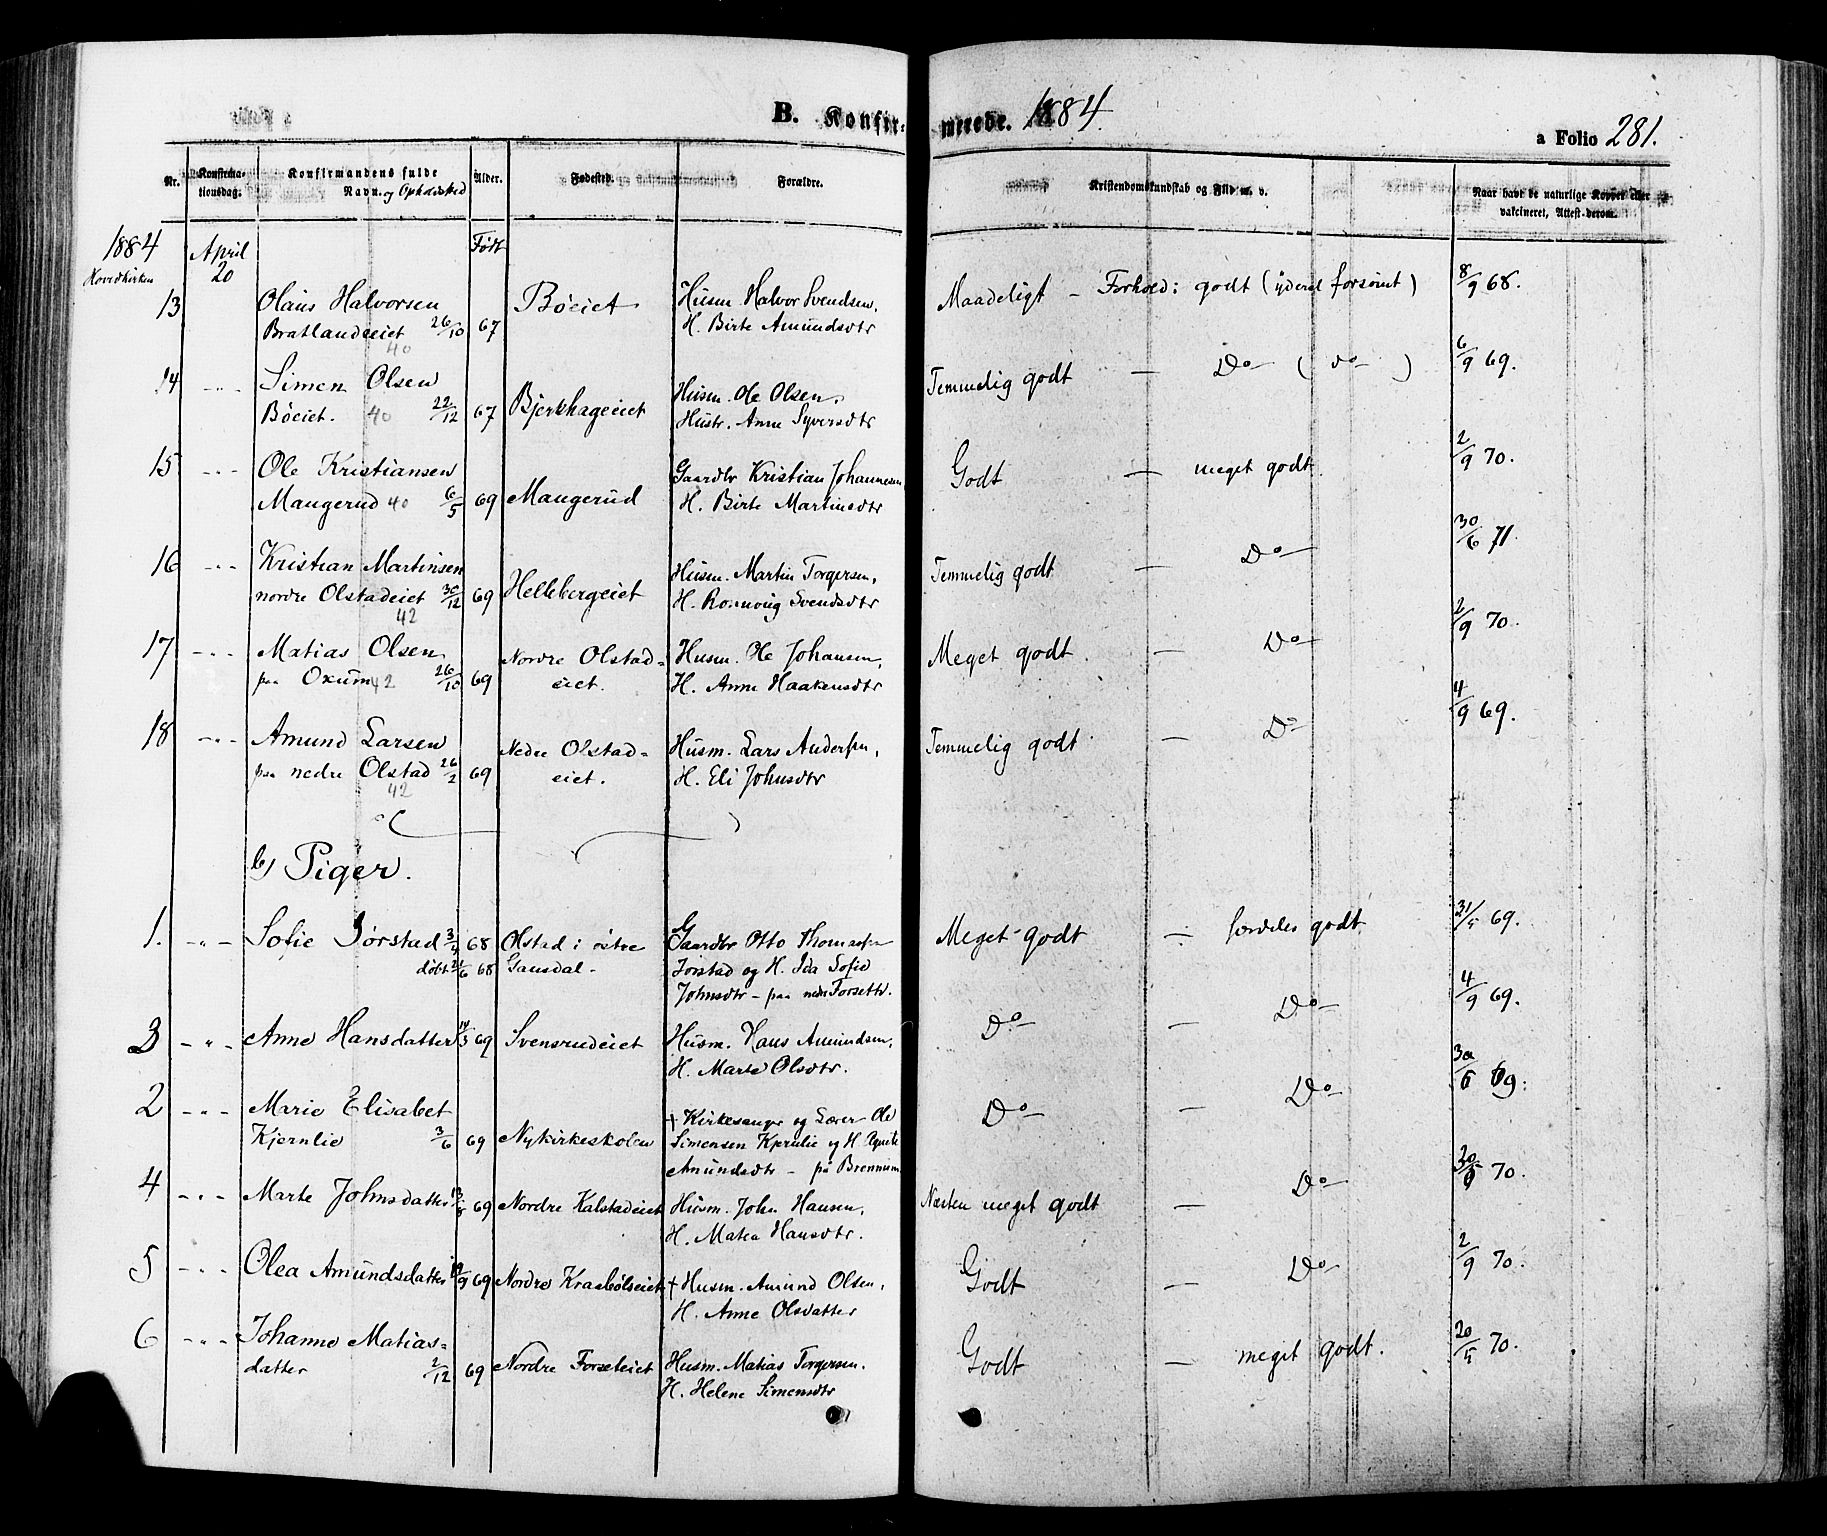 B. Konfirmerede. 1884.
a Folio 281.
Nr. Konfirmationsdag. Konfirmandens fulde Navn. og Opholdssted Alder. Fødested. Forældre. Kristendomskundskab og Flid m. v. Naar havt de naturlige Kopper eller vakcineret, Attest derom.
1884 April 20 Født
Hovedkirken
13 Olaus Halvorsen Bøeiet Husm. Halvor Svendsen, Maadeligt – Forhold: godt (yderst forsømt) 8/9 68.
Bratlandseiet 26/10 67 H. Birte Amundsdtr
40
14 -"- Simen Olsen Bjerkhageeiet Husm. Ole Olsen, Temmelig godt – Do (do) 6/9 69.
Bøeiet. 40 22/12 67 Hustr. Anne Syversdtr
15 -"- Ole Kristiansen Gaardbr Kristian Johannesen, Godt – meget godt. 2/9 70.
Maugerud 40 6/5 69 Maugerud H. Birte Martinsdtr
16 -"- Kristian Martinsen Husm. Martin Torgersen, Temmelig godt – Do 30/6 71.
nordre Olstadeiet 30/12 69 Hellebergeiet H. Rønnoug Svendsdtr
42
17 -"- Matias Olsen Nordre Olstad- Husm. Ole Johansen, Meget godt. – Do 2/9 70.
paa Oxum 42 26/10 69 eiet. H. Anne Haakensdtr
18 -"- Amund Larsen Nedre Olstad- Husm. Lars Andersen, Temmelig godt – Do 4/9 69.
paa nedre Olstad 26/2 69 eiet. H. Eli Johnsdtr
42
b) Piger.
1. -"- Sofie Jørstad 3/4 68 Olstad i østre Gaardbr Otto Thomassen Meget godt – særdeles godt 31/5 69.
døbt 21/6 68 Gausdal. Jørstad og H. Ida Sofie
Johnsdtr – paa nedre Forsettr.
3 -"- Anne Hansdatter 14/3 69 Svensrudeiet Husm. Hans Amundsen, Do – Do 4/9 69.
H. Marte Olsdtr.
2 -"- Marie Elisabet † Kirkesanger og Lærer Ole Do – Do 30/6 69.
Kjernlie 3/6 69 Nykirkeskolen Simensen Kjernlie og H. Agnete
Amundsdtr – på Brennum
4 -"- Marte Johnsdatter 69 Nordre Kalstadeiet Husm. John Hansen, Næsten meget godt – Do 70.
H. Matea Hansdtr.
5 -"- Olea Amundsdatter 69 Nordre Kraabølseiet † Husm. Amund Olsen, Godt – Do 2/9 70.
H. Anne Olsdatter
6 -"- Johanne Matias- Godt – meget godt. 20/5 70.
datter 2/12 69 Nordre Forseteiet Husm. Matias Torgersen.
H. Helene Simensdtr